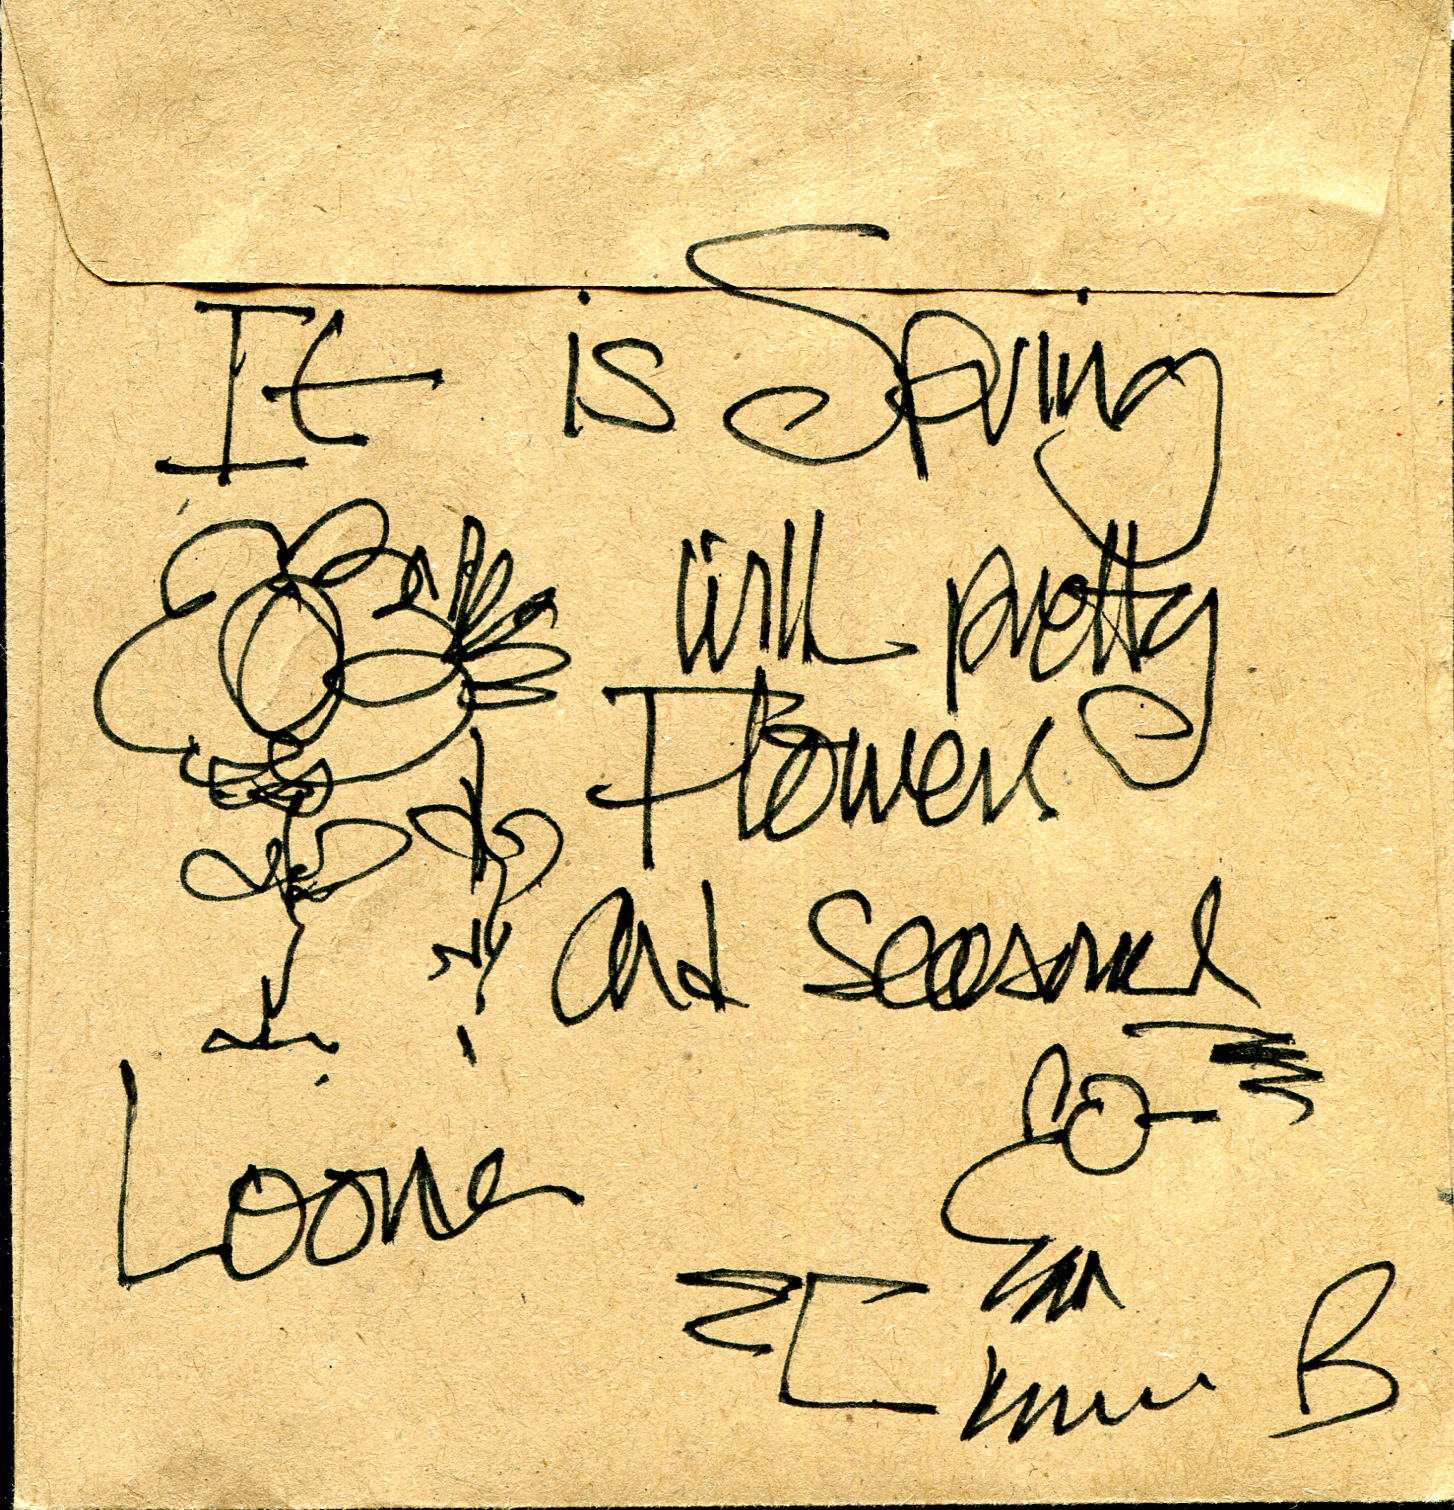 It is Spring
with pretty
Flowers
and seasonal
Loone
B